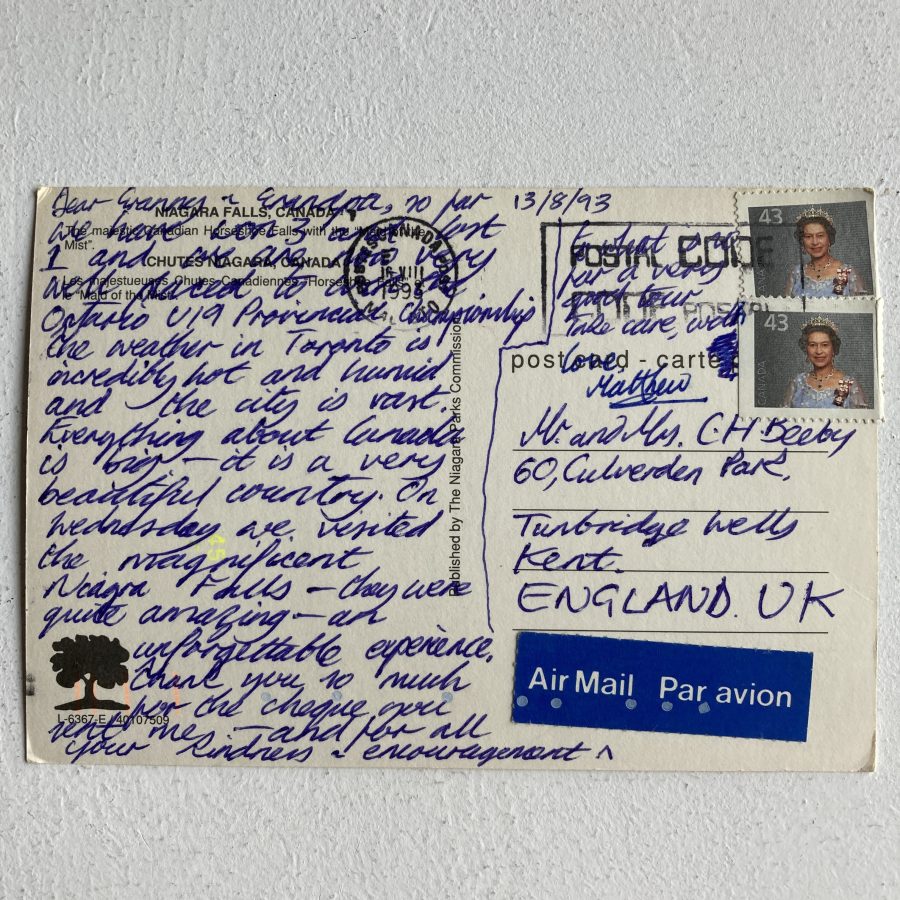 Dear Granny & Grandpa, so far
we have won 3 and lost
1 and are
Ontario U19 Provincial Championship
the weather in Toronto is
incredibly hot and humid
and the city is vast.
Everything about Canada
is big — it is a very
beautiful country. On
Wednesday we visited
the magnificent
Niagra Falls — they were
quite amazing — an
unforgettable experience.
Thank you so much
for the cheque you
sent me — and for all
your kindness & encouragement ^
NIAGARA FALLS, CANADA
The majestic Canadian Horseshoe Falls with the "Maid of the
Mist".
CHUTES NIAGARA, CANADA
Les majestueuses Chutes Canadiennes "Horseshoe
le "Maid of the Mist".
L-6367-E
40107509
45
Published by The Niagara Parks Commission
13/8/93
for a very
good tour
Take care, with
love
Matthew
CANADA
16 VIII
1993
POSTAL CODE
CODE POSTAL
43
CANADA
43
CANADA
post card - carte
Mr. and Mrs. C.H Beeby
60, Culverden Park,
Tunbridge Wells
Kent.
ENGLAND. UK
Air Mail Par avion